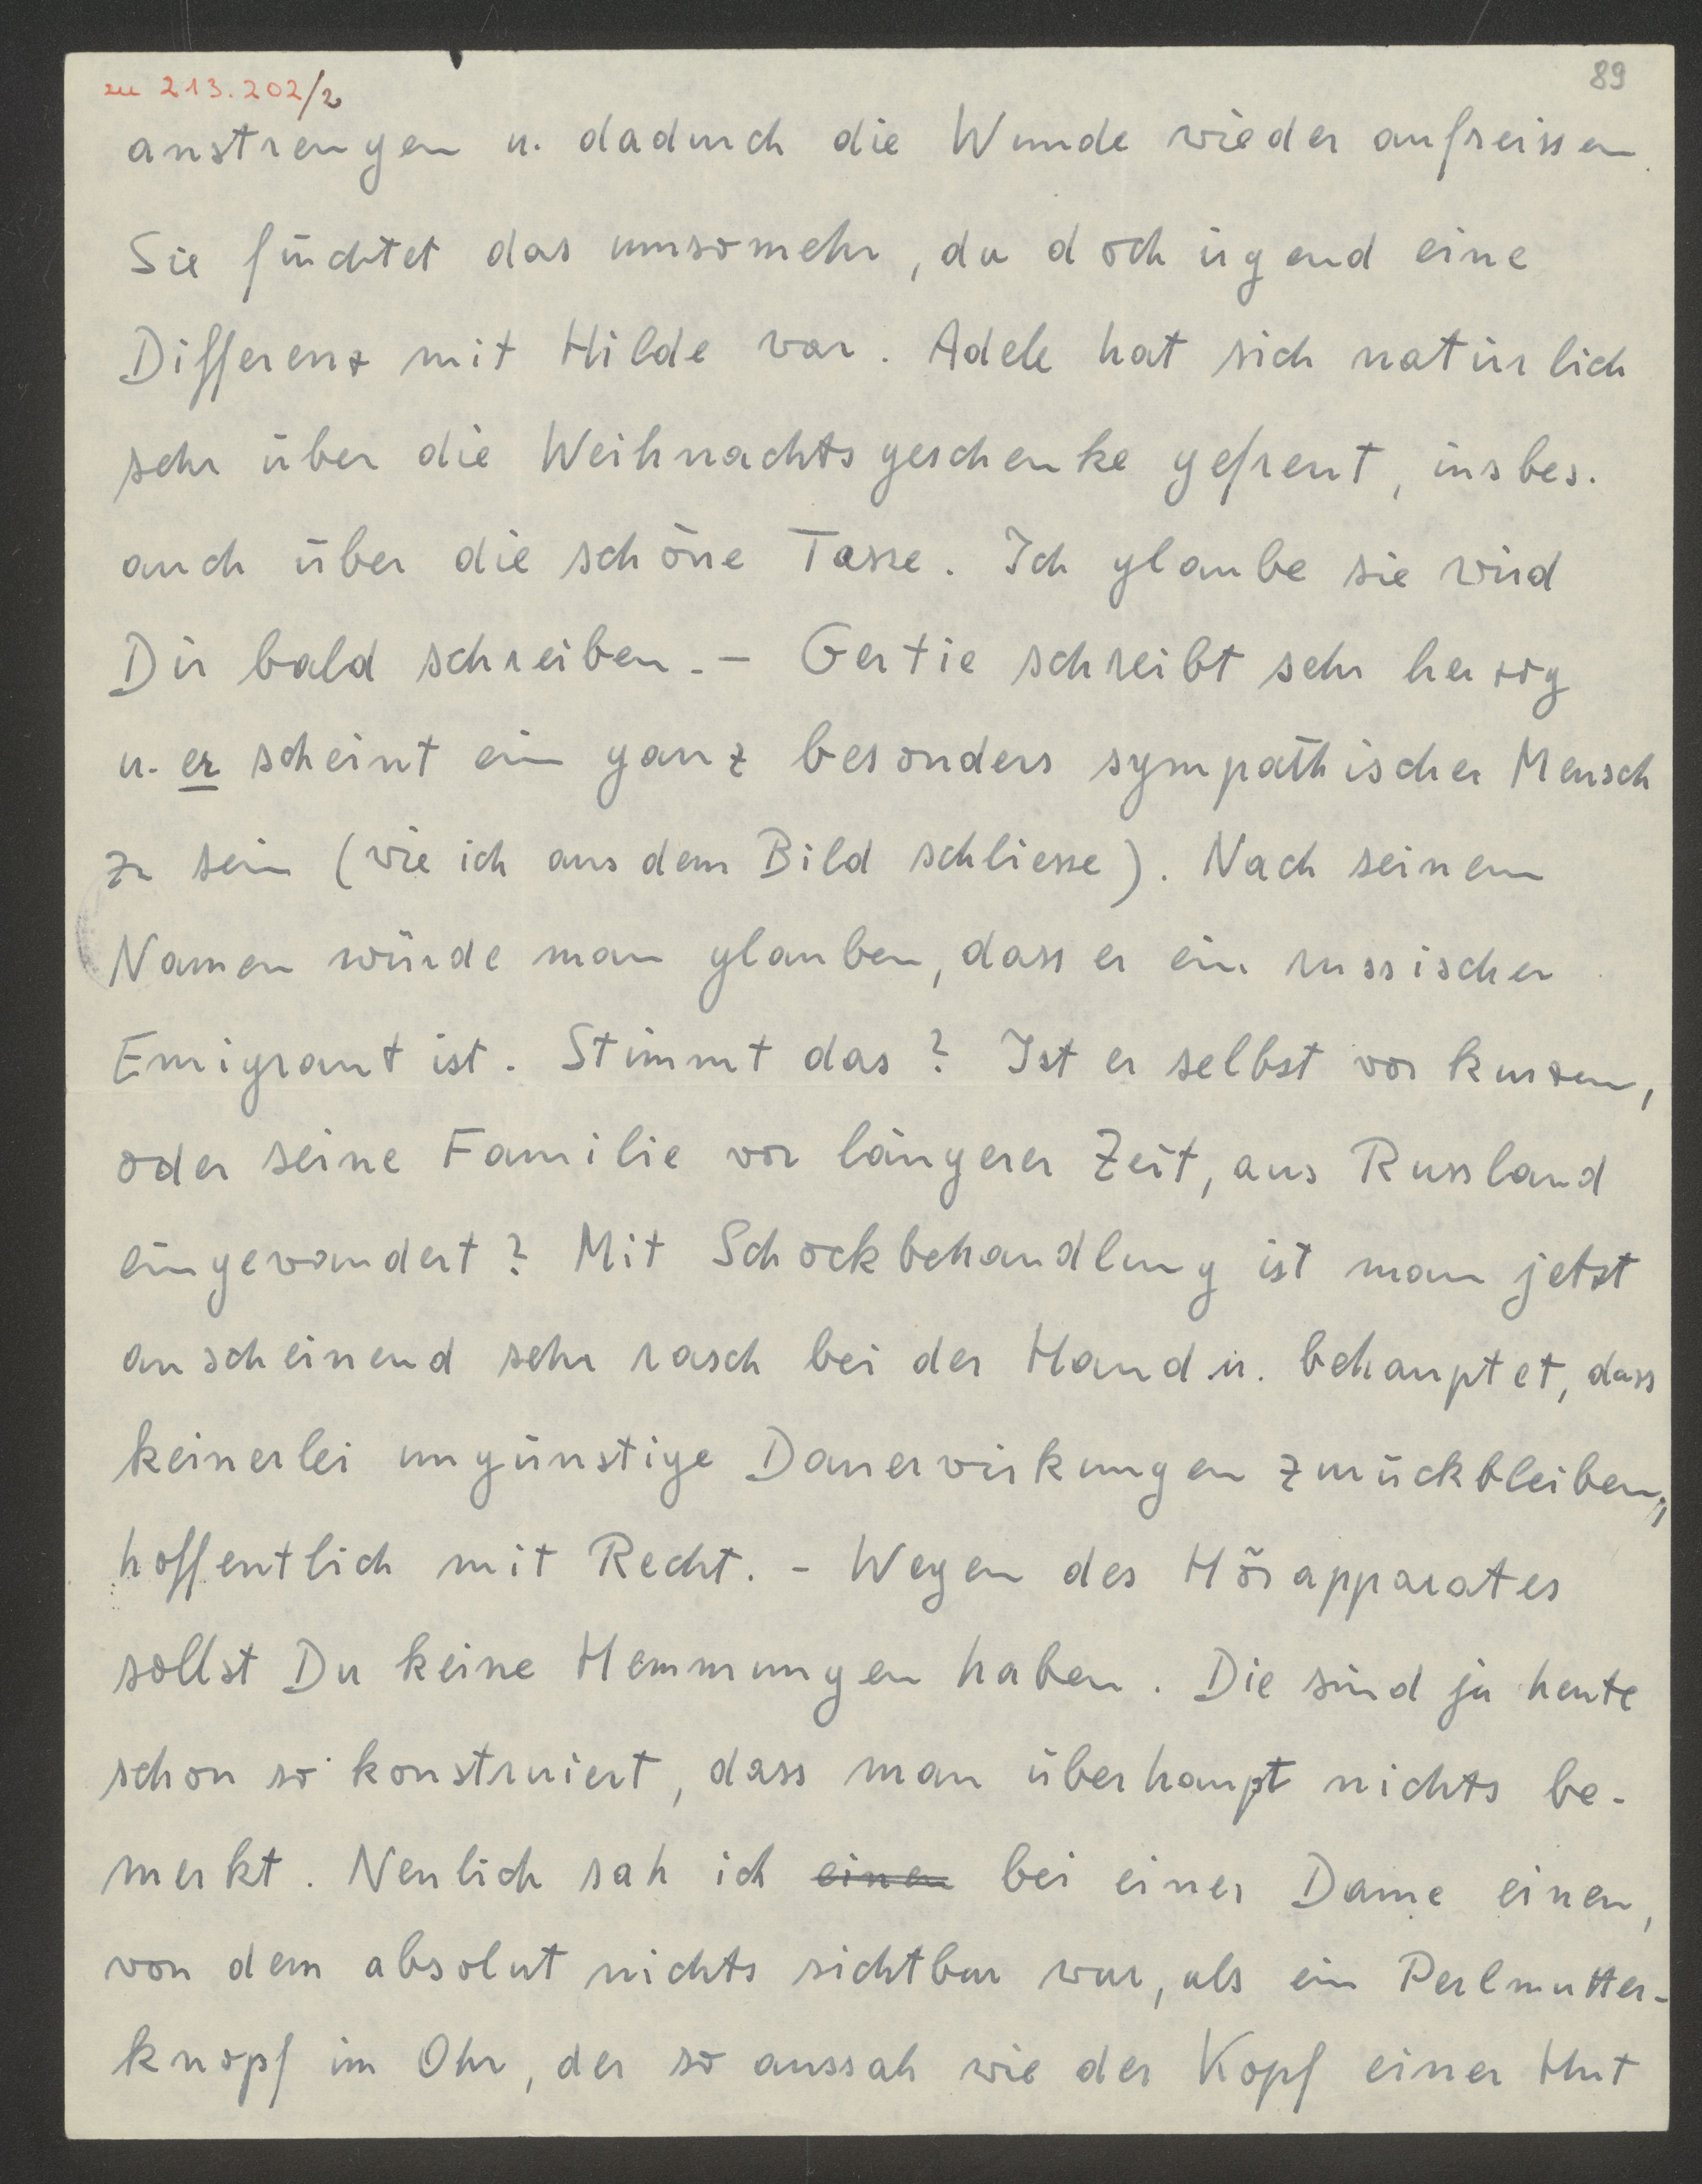 zu 213.202/2
89
anstrengen u. dadurch die Wunde wieder aufreissen.
Sie fürchtet das umsomehr, da doch irgend eine
Differenz mit Hilde war. Adele hat sich natürlich
sehr über die Weihnachtsgeschenke gefreut, insbes.
auch über die schöne Tasse. Ich glaube sie wird
Dir bald schreiben. – Gertie schreibt sehr herzig
u. er scheint ein ganz besonders sympathischer Mensch
zu sein (wie ich aus dem Bild schliesse). Nach seinem
Namen würde man glauben, dass er ein russischer
Emigrant ist. Stimmt das? Ist er selbst vor kurzem,
oder seine Familie vor längerer Zeit, aus Russland
eingewandert? Mit Schockbehandlung ist man jetzt
anscheinend sehr rasch bei der Hand u. behauptet, dass
keinerlei ungünstige Dauerwirkungen zurückbleiben,
hoffentlich mit Recht. – Wegen des Hörapparates
sollst Du keine Hemmungen haben. Die sind ja heute
schon so konstruiert, dass man überhaupt nichts be-
merkt. Neulich sah ich einen bei einer Dame einen,
von dem absolut nichts sichtbar war, als ein Perlmutter-
knopf im Ohr, der so aussah wie der Kopf einer Hut